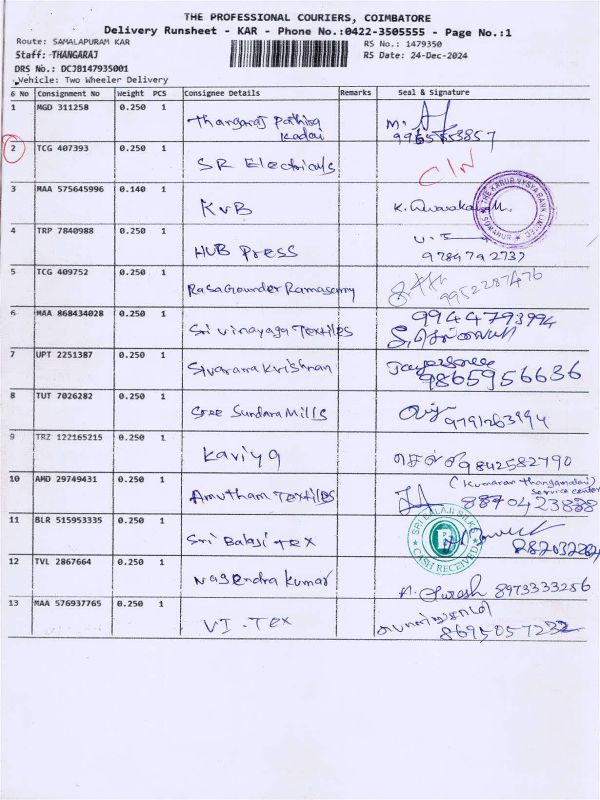 THE PROFESSIONAL COURIERS, COIMBATORE
Delivery Runsheet - KAR - Phone No.:0422-3505555 - Page No.:1
Route: SAMALAPURAM KAR
RS No.: 1479350
Staff: THANGARAJ
RS Date: 24-Dec-2024
DRS No.: DCJB147935001
Vehicle: Two Wheeler Delivery
S No Consignment No Weight PCS Consignee Details Remarks Seal & Signature
1 MGD 311258 0.250 1 Thangaraj
Kadai
2 TCG 407393 0.250 1 SR Electricals C/N
3 MAA 575645996 0.140 1 KVB K.
THE KARUR VYSYA BANK LIMITED
4 TRP 7840988 0.250 1 HUB Press
9789792737
5 TCG 409752 0.250 1 RasaGounder Ramasamy 9952287476
6 MAA 868434028 0.250 1 Sri Vinayaga Textiles 9944793994
7 UPT 2251387 0.250 1 Sivarama Krishnan
9865956636
8 TUT 7026282 0.250 1 Sree Sundara Mills 9791263994
9 TRZ 122165215 0.250 1 Kaviya 9842582790
10 AMD 29749431 0.250 1 Amutham Textiles (Kumaran Thangamalai)
service center
8870423888
11 BLR 515953335 0.250 1 Sri Balaji tex
SRI BALAJI SILKS
CASH RECEIVED
12 TVL 2867664 0.250 1 Nagendra Kumar A. Suresh 8973333256
13 MAA 576937765 0.250 1 VI. Tex
8695057232